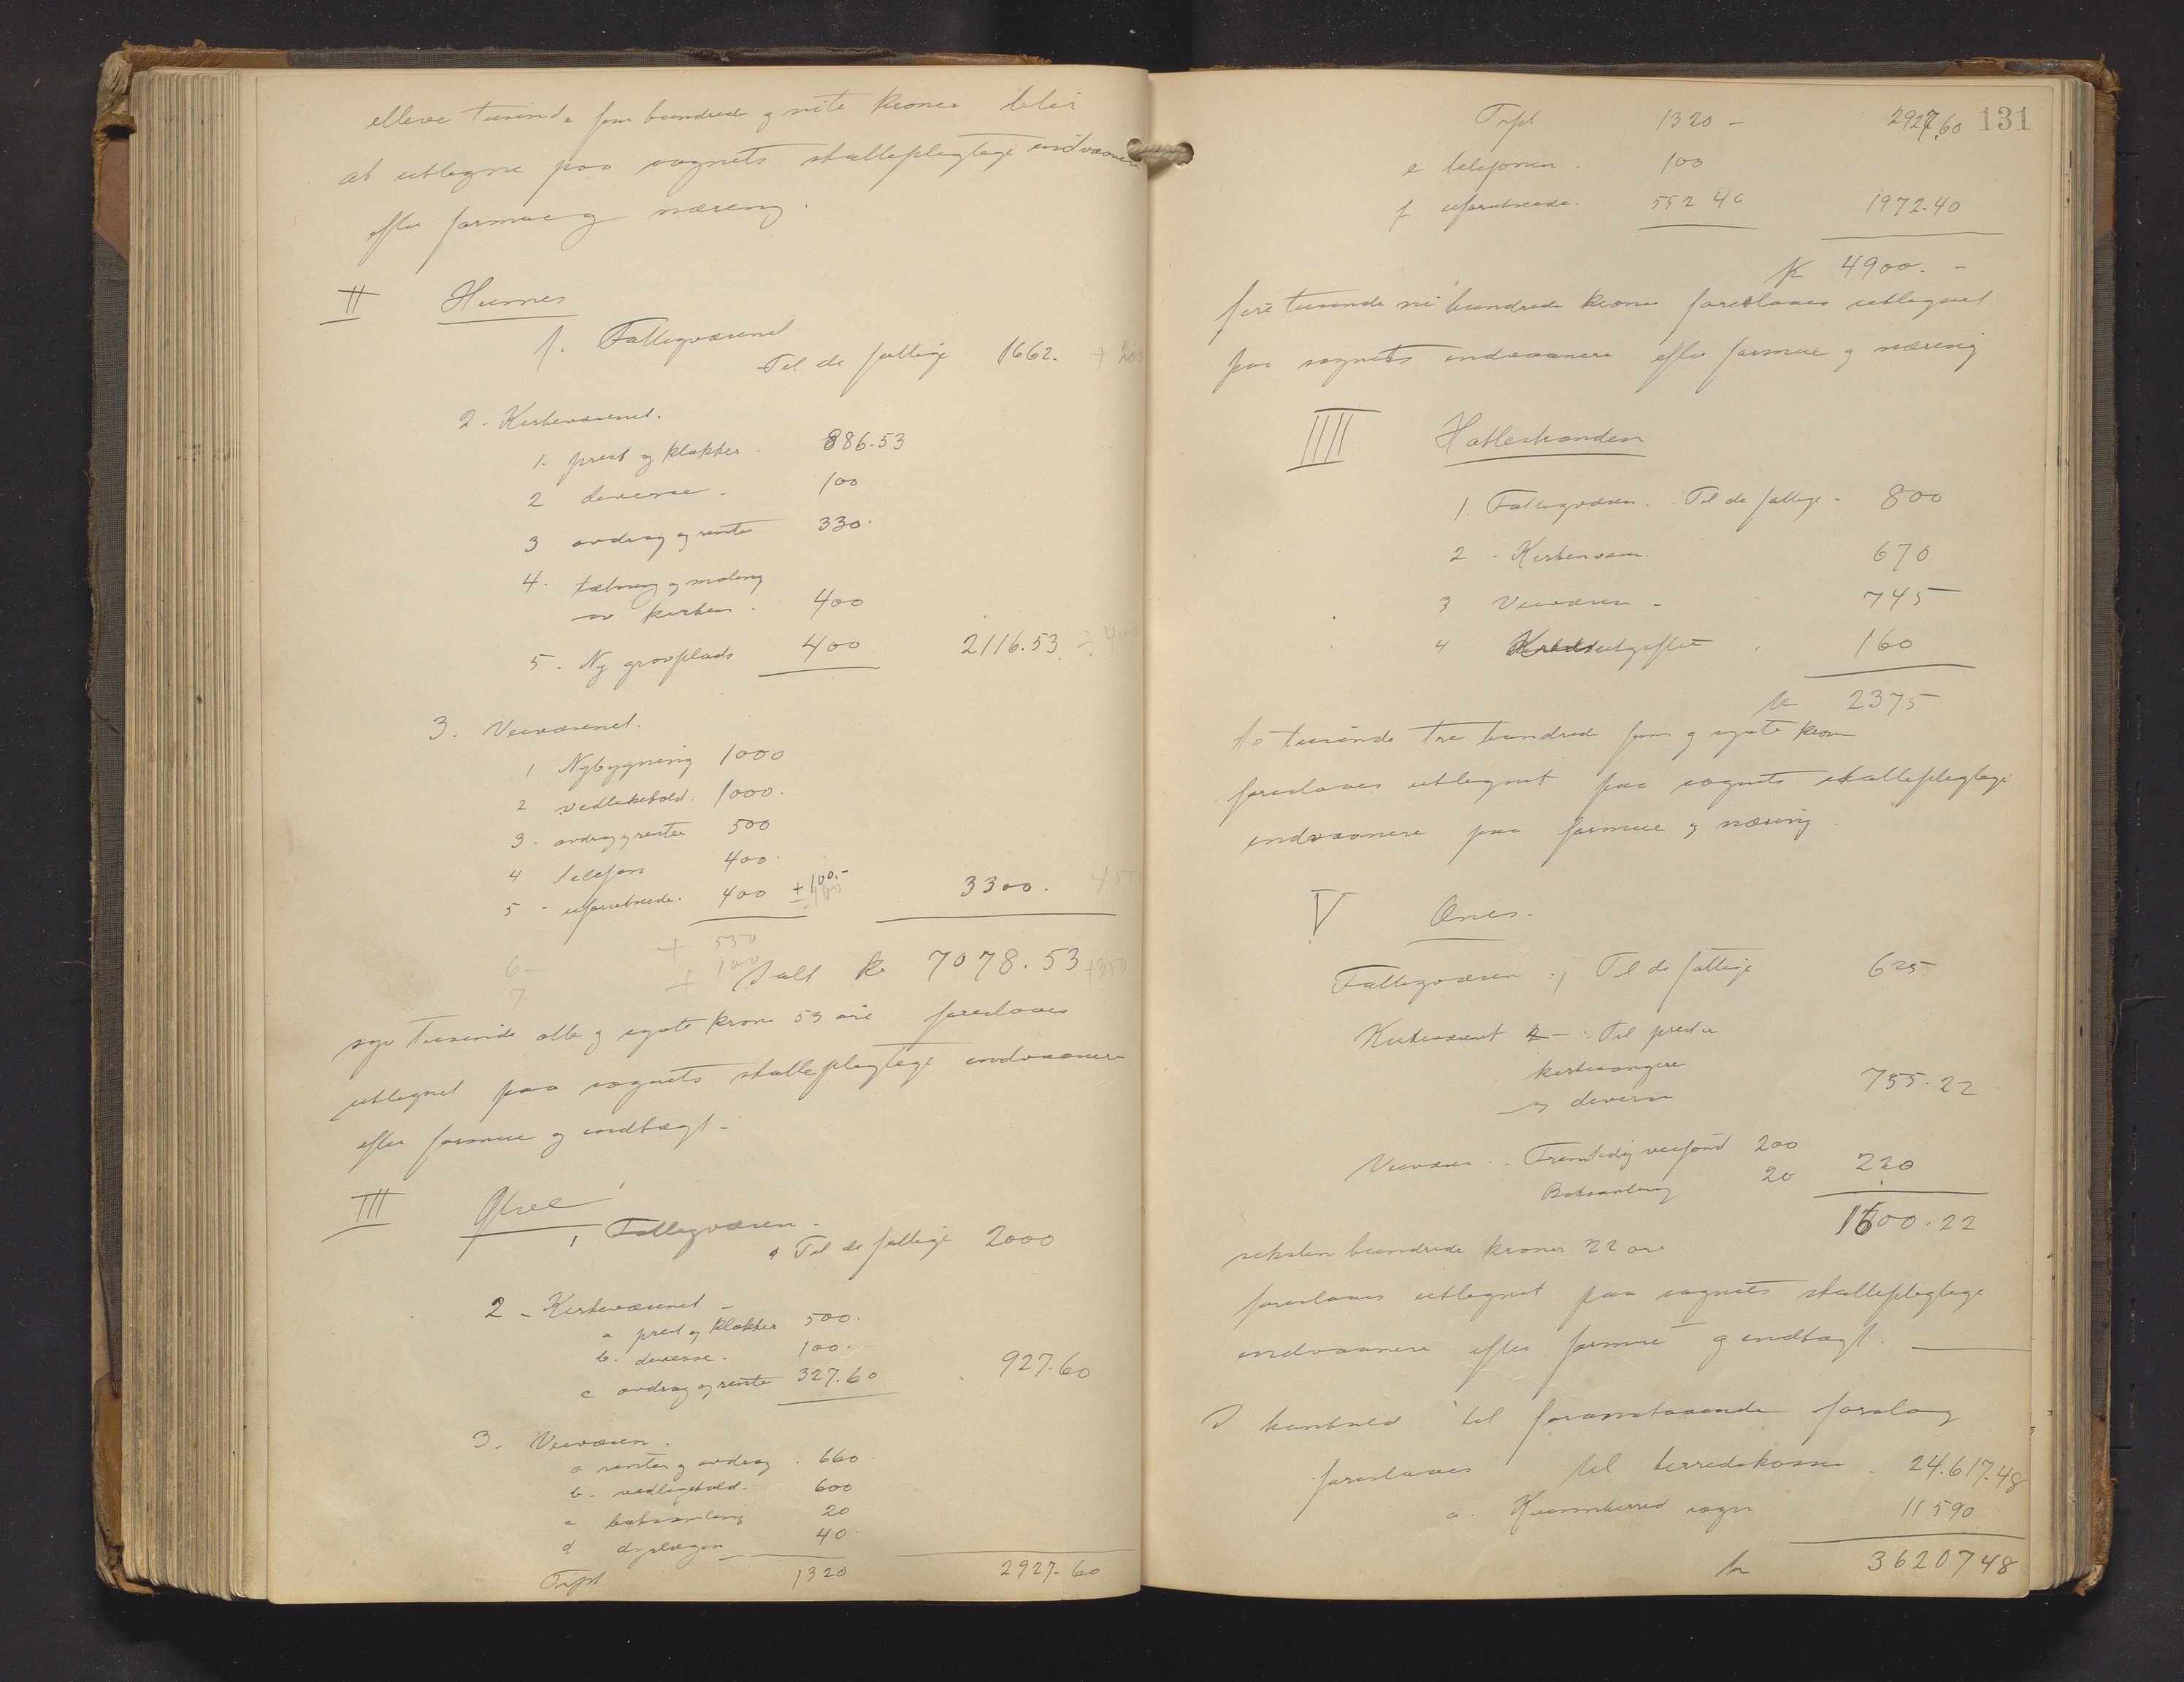 elleve tusinde fem hundrede og niti kroner blir
at utlegne paa sognets skattepligtige indvaanere
efter formue og næring.
II Husnes
1. Fattigvæsenet
Til de fattige 1662. + 200
2. Kirkevæsenet.
1. prest og klokker. 886.53
2 diverse. 100
3 avdrag og rente 330.
4. tætning og maling
av kirken. 400
5. Ny gravplads 400 2116.53 ÷ 400
3. Veivæsenet.
1 Nybygning 1000
2 vedlikehold. 1000.
3. avdrag og renter 500
4 telefon 400.
5 - uforutseede. 400 ± 100.- 3300. + 550
6 - + 550
7. ± 100
Ialt kr 7078.53 + 350
syv tusinde otte og sytti krone 53 øre foreslaaes
utlignet paa sognets skattepligtige indvaanere
efter formue og indtægt -
III Ølve
1 Fattigvæsen.
a Til de fattige 2000
2 - Kirkevæsenet -
a prest og klokker 500.
b. diverse. 100.
c avdrag og rente 327.60 927.60
3. Veivæsen.
a renter og avdrag. 660.
b. vedligehold. 600
c baksamling 20
d dyrlægen 40.
Trspt 1320 2927.60
131
Trspt 1320 - 2927.60
e telefonen. 100
f uforutseede. 552 40 1972.40
kr 4900. -
fire tusinde ni hundrede kroner foreslaaes utlegnet
paa sognets indvaanere efter formue og næring
IIII Hatlestranden
1. Fattigvæsen. Til de fattige - 800
2 - Kirkevæsen. 670
3 Veivæsen - 745
4 Kredsutgifter 160
kr 2375
to tusinde tre hundrede fem og sytti krone
foreslaaes utlegnet paa sognets skattepligtige
indvaanere paa formue og næring.
V Ænes.
Fattigvæsen :/ Til de fattige 625
Kirkevæsenet - : Til prest
kirkesangere
og diverse 755.22
Veivæsen. Fremtidig veifond 200
Baksamling 20 220
1600.22
seksten hundrede kroner 22 øre
foreslaaes utlegnet paa sognets skattepligtige
indvaanere efter formue og indtægt.
I henhold til foranstaaende forslag
foreslaaes til herredskassen. 24.617.48
a. Kvinnherred sogn 11590
kr 3620748